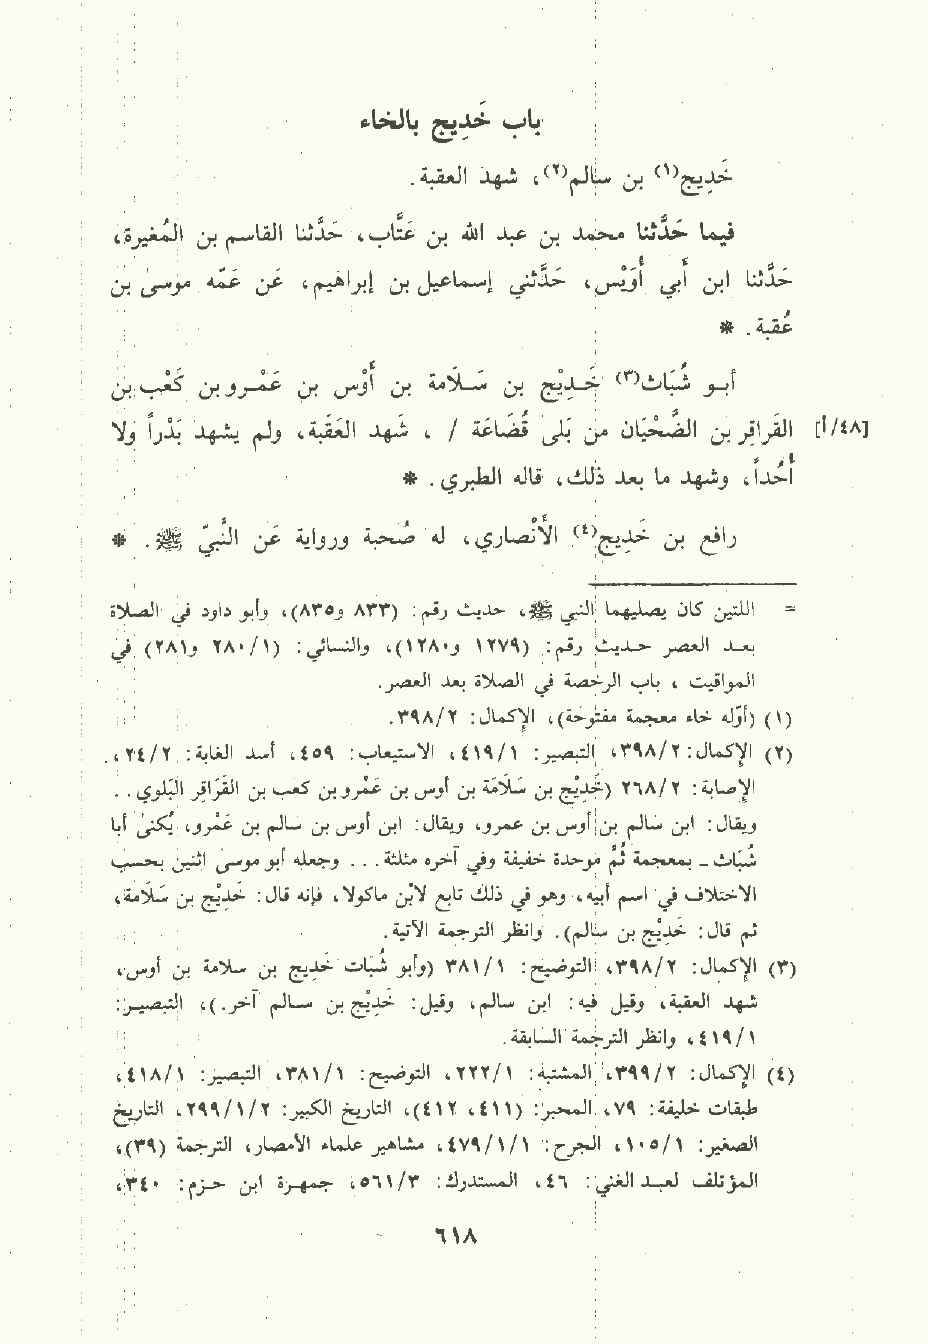 باب خَدِيج بالخاء
خَدِيج(١) بن سالم(٢)، شهد العقبة.
فيما حَدَّثنا محمد بن عبد الله بن عَتَّاب، حَدَّثنا القاسم بن المُغيرة،
حَدَّثنا ابن أبي أُوَيْس، حَدَّثني إسماعيل بن إبراهيم، عَن عَمّه موسىٰ بن
عُقبة. *
أبو شُبَاث(٣) خَدِيْج بن سَلَامة بن أَوْس بن عَمْرو بن كَعْب بن
[٤٨/أ] القَراقِر بن الضَّحْيَان من بَلى قُضَاعَة / ، شَهد العَقَبة، ولم يشهد بَدْراً ولا
أُحُداً، وشهد ما بعد ذلك، قاله الطبري. *
رافع بن خَدِيج(٤) الأَنْصاري، له صُحبة ورواية عَن النَّبيّ ﷺ. *
= اللتين كان يصليهما النبي ﷺ، حديث رقم: (٨٣٣ و٨٣٥)، وأبو داود في الصلاة
بعد العصر حديث رقم: (١٢٧٩ و١٢٨٠)، والنسائي: (٢٨٠/١ و٢٨١) في
المواقيت ، باب الرخصة في الصلاة بعد العصر.
(١) (أوّله خاء معجمة مفتوحة)، الإكمال: ٣٩٨/٢.
(٢) الإكمال: ٣٩٨/٢، التبصير: ٤١٩/١، الاستيعاب: ٤٥٩، أسد الغابة: ٢٤/٢،
الإصابة: ٢٦٨/٢ (خَدِيْج بن سَلَامَة بن أوس بن عَمْرو بن كعب بن القَرَاقِر البَلَوي. .
ويقال: ابن سالم بن أوس بن عمرو، ويقال: ابن أوس بن سالم بن عَمْرو، يُكنىٰ أبا
شُبَاث ـ بمعجمة ثُمَّ موحدة خفيفة وفي آخره مثلثة. . . وجعله أبو موسىٰ اثنين بحسب
الاختلاف في اسم أبيه، وهو في ذلك تابع لابْن ماكولا، فإنه قال: خَدِيْج بن سَلَامَة،
ثم قال: خَدِيْج بن سالم). وانظر الترجمة الآتية.
(٣) الإكمال: ٣٩٨/٢، التوضيح: ٣٨١/١ (وأبو شُبَاث خَدِيج بن سلامة بن أوس،
شهد العقبة، وقيل فيه: ابن سالم، وقيل: خَدِيْج بن سالم آخر.)، التبصير:
٤١٩/١، وانظر الترجمة السابقة.
(٤) الإكمال: ٣٩٩/٢، المشتبة: ٢٢٢/١، التوضيح: ٣٨١/١، التبصير: ٤١٨/١،
طبقات خليفة: ٧٩، المحبر: (٤١١، ٤١٢)، التاريخ الكبير: ٢٩٩/١/٢، التاريخ
الصغير: ١٠٥/١، الجرح: ٤٧٩/١/١، مشاهير علماء الأمصار، الترجمة (٣٩)،
المؤتلف لعبد الغني: ٤٦، المستدرك: ٥٦١/٣، جمهرة ابن حزم: ٣٤٠،
٦١٨